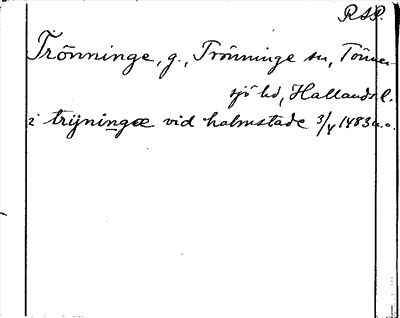 RAP.
Trönninge, g., Trönninge sn, Tönner-
sjö hd, Hallands l.
i trijningæ vid halmstade 3/4 1483 u.o.